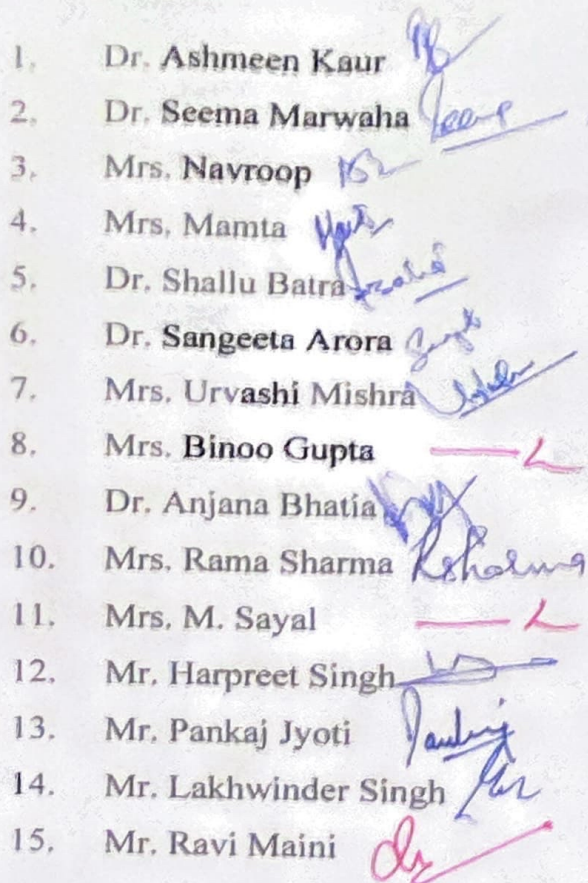 1. Dr. Ashmeen Kaur
2. Dr. Seema Marwaha
3. Mrs. Navroop
4. Mrs. Mamta
5. Dr. Shallu Batra
6. Dr. Sangeeta Arora
7. Mrs. Urvashi Mishra
8. Mrs. Binoo Gupta — L
9. Dr. Anjana Bhatia
10. Mrs. Rama Sharma RSharma
11. Mrs. M. Sayal — L
12. Mr. Harpreet Singh
13. Mr. Pankaj Jyoti
14. Mr. Lakhwinder Singh
15. Mr. Ravi Maini